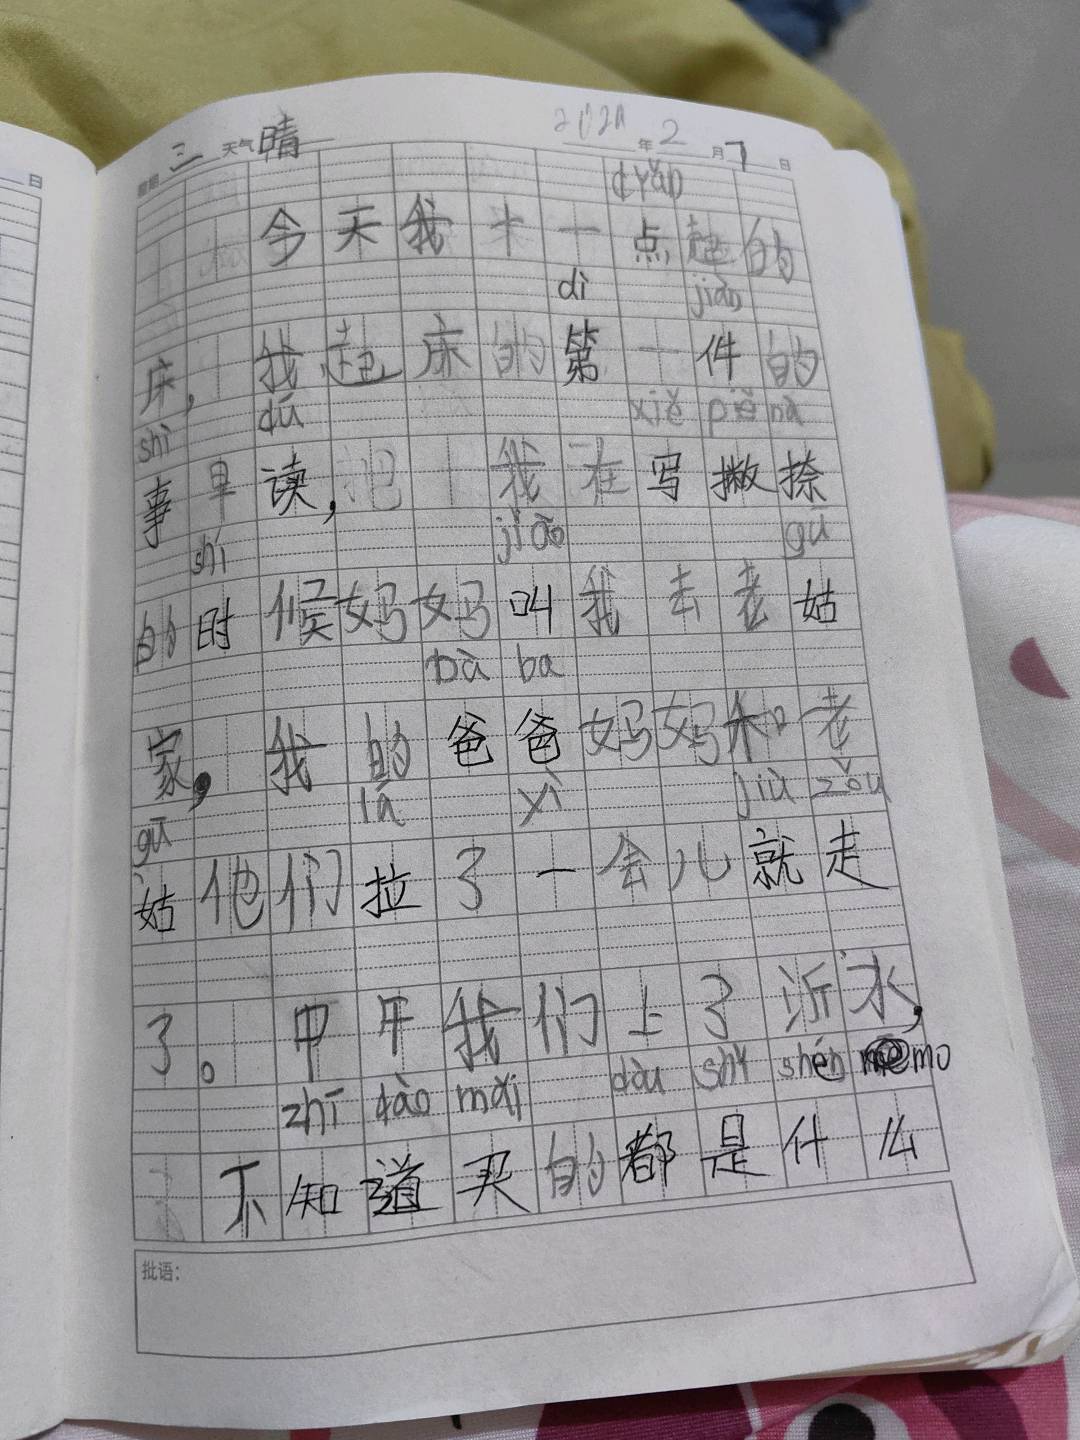 日
星期 三 天气 晴 年 2 月 7 日
diǎn
今天我十一点起的
dì jiàn
床，我起床的第一件的
shì dú xiě piě nà
事早读，我在写撇捺
shí jiào gū
的时候妈妈叫我去老姑
bà ba
家，我的爸爸妈妈和老
gū lā yì jiù zǒu
姑他们拉了一会儿就走
了。中午我们上了沂水，
zhī dào mǎi dōu shì shén mo
不知道买的都是什么
批语：